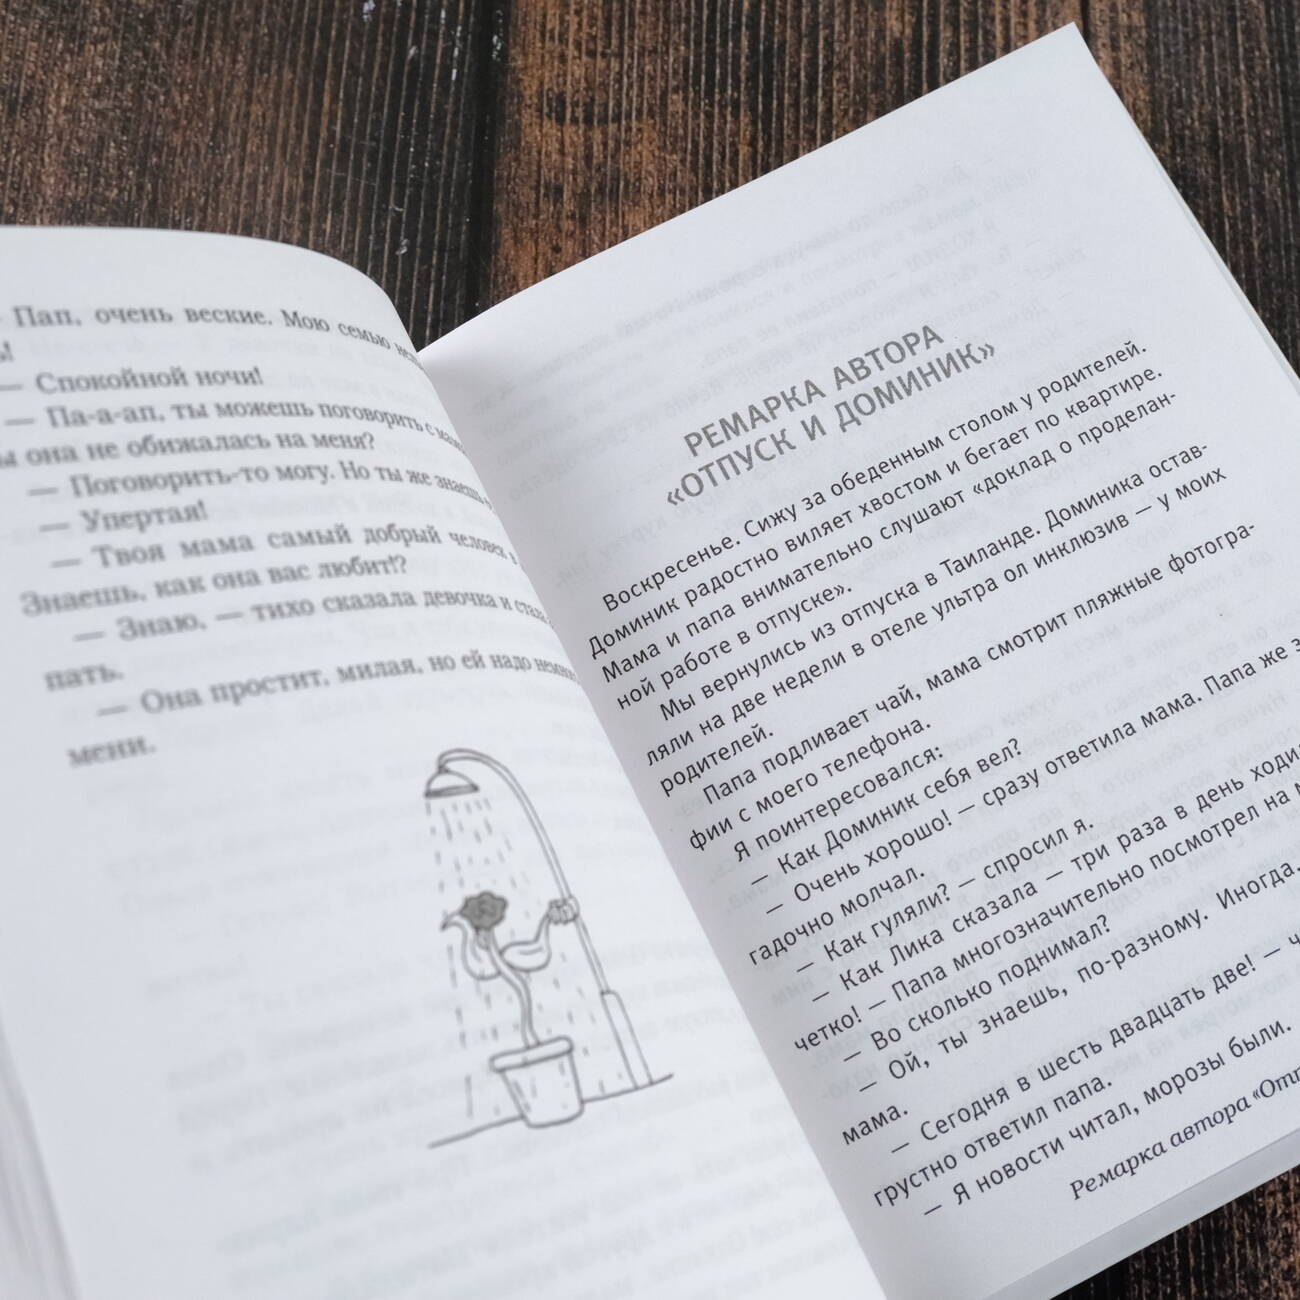 — Пап, очень веские. Мою семью
— Спокойной ночи!
— Па-а-ап, ты можешь поговорить с
она не обижалась на меня?
— Поговорить-то могу. Но ты же знаешь
— Упертая!
— Твоя мама самый добрый человек в
Знаешь, как она вас любит!?
— Знаю, — тихо сказала девочка и
пать.
— Она простит, милая, но ей надо
мени.
РЕМАРКА АВТОРА
«ОТПУСК И ДОМИНИК»
Воскресенье. Сижу за обеденным столом у родителей.
Доминик радостно виляет хвостом и бегает по квартире.
Мама и папа внимательно слушают «доклад о проделан-
ной работе в отпуске».
Мы вернулись из отпуска в Таиланде. Доминика остав-
ляли на две недели в отеле ультра ол инклюзив — у моих
родителей.
Папа подливает чай, мама смотрит пляжные фотогра-
фии с моего телефона.
Я поинтересовался:
— Как Доминик себя вел?
— Очень хорошо! — сразу ответила мама. Папа же
гадочно молчал.
— Как гуляли? — спросил я.
— Как Лика сказала — три раза в день
четко! — Папа многозначительно посмотрел на
— Во сколько поднимал?
— Ой, ты знаешь, по-разному. Иногда,
мама.
— Сегодня в шесть двадцать две! —
грустно ответил папа.
— Я новости читал, морозы были.
Ремарка автора